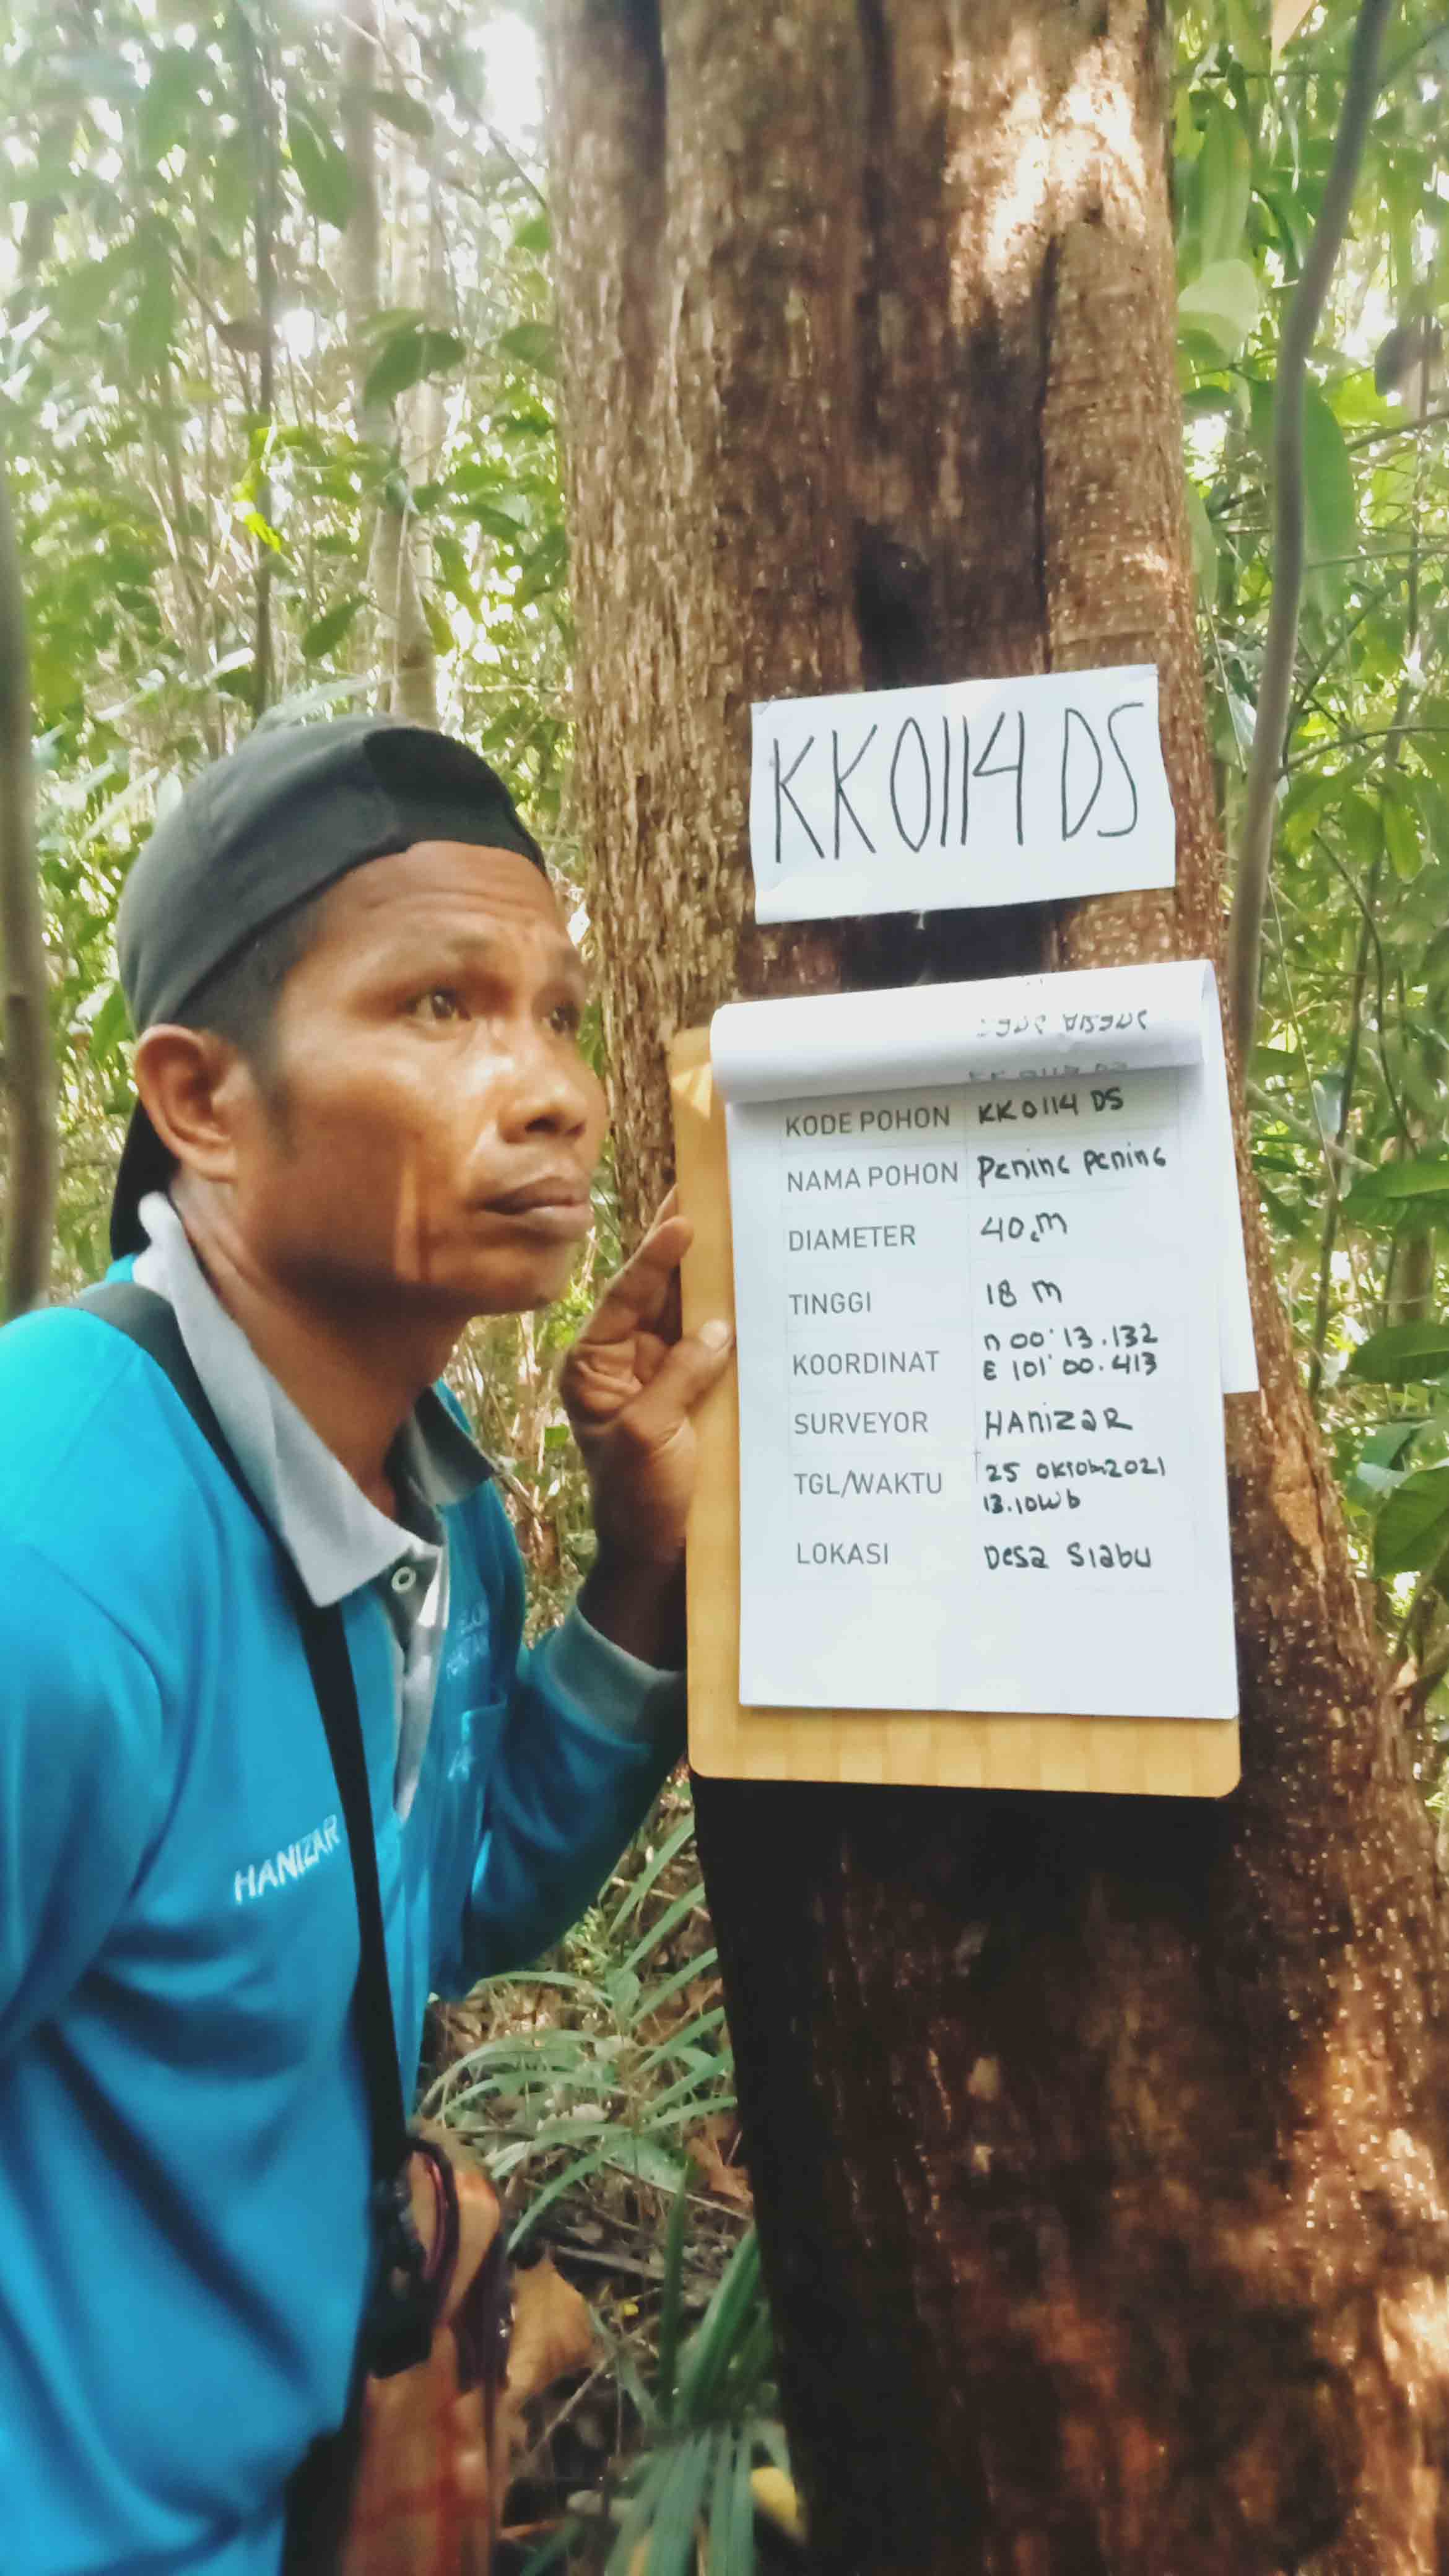 KK0114 DS
KODE POHON KK0114 DS
NAMA POHON Pening Pening
DIAMETER 40 cm
TINGGI 18 m
KOORDINAT n 00° 13.132
E 101° 00.413
SURVEYOR HANIZAR
TGL/WAKTU 25 Oktob 2021
13.10 Wb
LOKASI Desa Siabu
HANIZAR